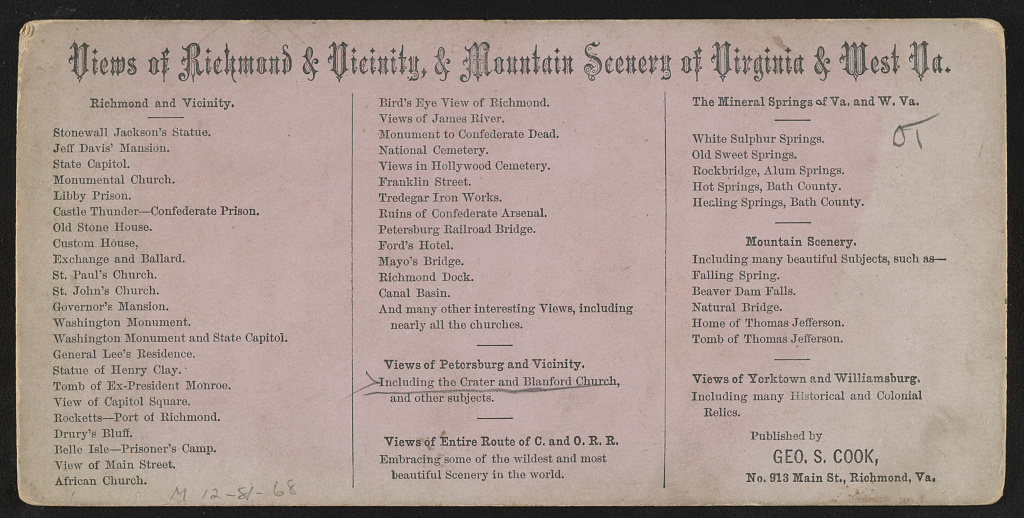 Views of Richmond & Vicinity, & Mountain Scenery of Virginia & West Va.
Richmond and Vicinity.
Stonewall Jackson's Statue.
Jeff Davis' Mansion.
State Capitol.
Monumental Church.
Libby Prison.
Castle Thunder—Confederate Prison.
Old Stone House.
Custom House,
Exchange and Ballard.
St. Paul's Church.
St. John's Church.
Governor's Mansion.
Washington Monument.
Washington Monument and State Capitol.
General Lee's Residence.
Statue of Henry Clay.
Tomb of Ex-President Monroe.
View of Capitol Square.
Rocketts—Port of Richmond.
Drury's Bluff.
Belle Isle—Prisoner's Camp.
View of Main Street.
African Church.
M 12-81-68
Bird's Eye View of Richmond.
Views of James River.
Monument to Confederate Dead.
National Cemetery.
Views in Hollywood Cemetery.
Franklin Street.
Tredegar Iron Works.
Ruins of Confederate Arsenal.
Petersburg Railroad Bridge.
Ford's Hotel.
Mayo's Bridge.
Richmond Dock.
Canal Basin.
And many other interesting Views, including
nearly all the churches.
Views of Petersburg and Vicinity.
Including the Crater and Blanford Church,
and other subjects.
Views of Entire Route of C. and O. R. R.
Embracing some of the wildest and most
beautiful Scenery in the world.
The Mineral Springs of Va. and W. Va.
White Sulphur Springs.
Old Sweet Springs.
Rockbridge, Alum Springs.
Hot Springs, Bath County.
Healing Springs, Bath County.
Mountain Scenery.
Including many beautiful Subjects, such as—
Falling Spring.
Beaver Dam Falls.
Natural Bridge.
Home of Thomas Jefferson.
Tomb of Thomas Jefferson.
Views of Yorktown and Williamsburg.
Including many Historical and Colonial
Relics.
Published by
GEO. S. COOK,
No. 913 Main St., Richmond, Va.